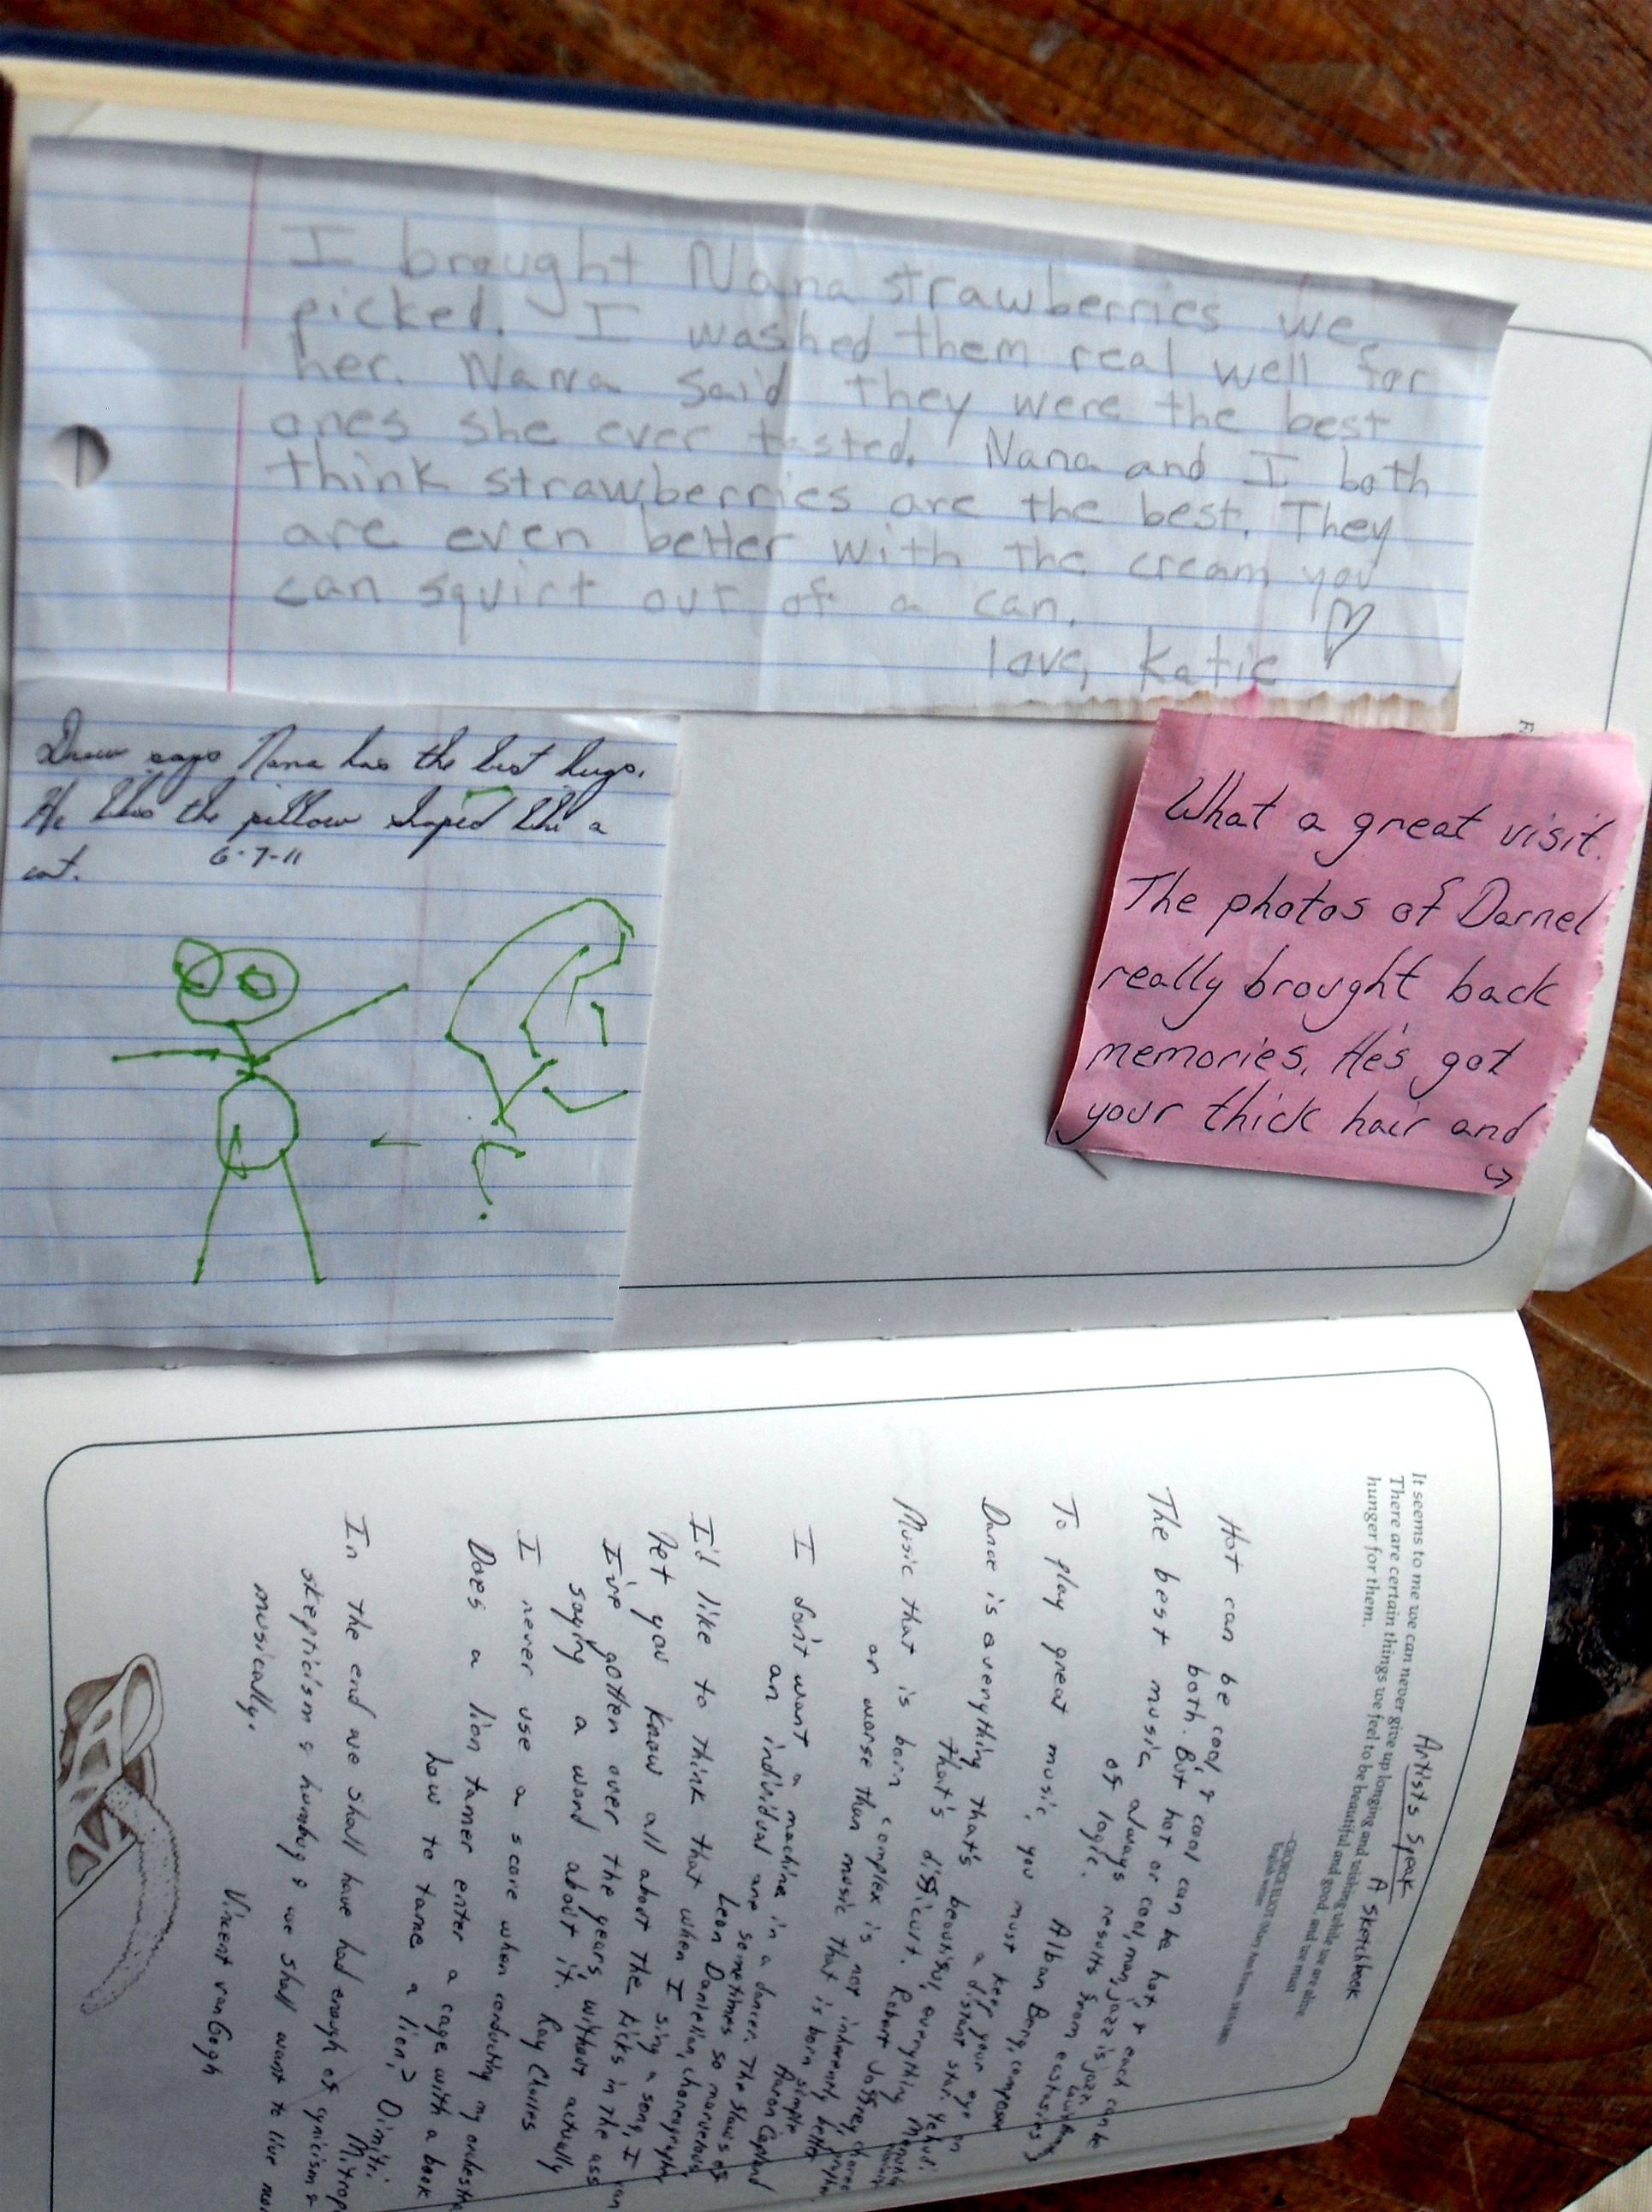 I brought Nana strawberries we
picked. I washed them real well for
her. Nana said they were the best
ones she ever tasted. Nana and I both
think strawberries are the best. They
are even better with the cream you
can squirt out of a can.
love, Katie
Drew says Nana has the best hugs.
He likes the pillow shaped like a
cat.
6-7-11
What a great visit.
The photos of Darnel
really brought back
memories. He's got
your thick hair and
Artists Speak
A Sketchbook
It seems to me we can never give up longing and wishing while we are alive.
There are certain things we feel to be beautiful and good, and we must
hunger for them.
—GEORGE ELIOT (Mary Ann Evans, 1819-1880)
English writer
Hot can be cool & cool can be hot, & each can be
both. But hot or cool, man, jazz is jazz.
The best music always results from ecstasies
of logic. Alban Berg, composer
To play great music, you must keep your eye on
a distant star. Yehudi Menuhin
Dance is everything that's beautiful, everything
that's difficult. Robert Joffrey
Music that is born complex is not inherently better
or worse than music that is born simple.
Aaron Copland
I don't want a machine in a dancer. The flaws of
an individual are sometimes so marvelous.
Leon Danielian, choreographer
I'd like to think that when I sing a song, I can
let you know all about the kicks in the ass
I've gotten over the years, without actually
saying a word about it. Ray Charles
I never use a score when conducting my orchestra
Does a lion tamer enter a cage with a book
how to tame a lion? Dimitri
Mitrop
In the end we shall have had enough of cynicism &
skepticism & humbug & we shall want to live more
musically.
Vincent van Gogh